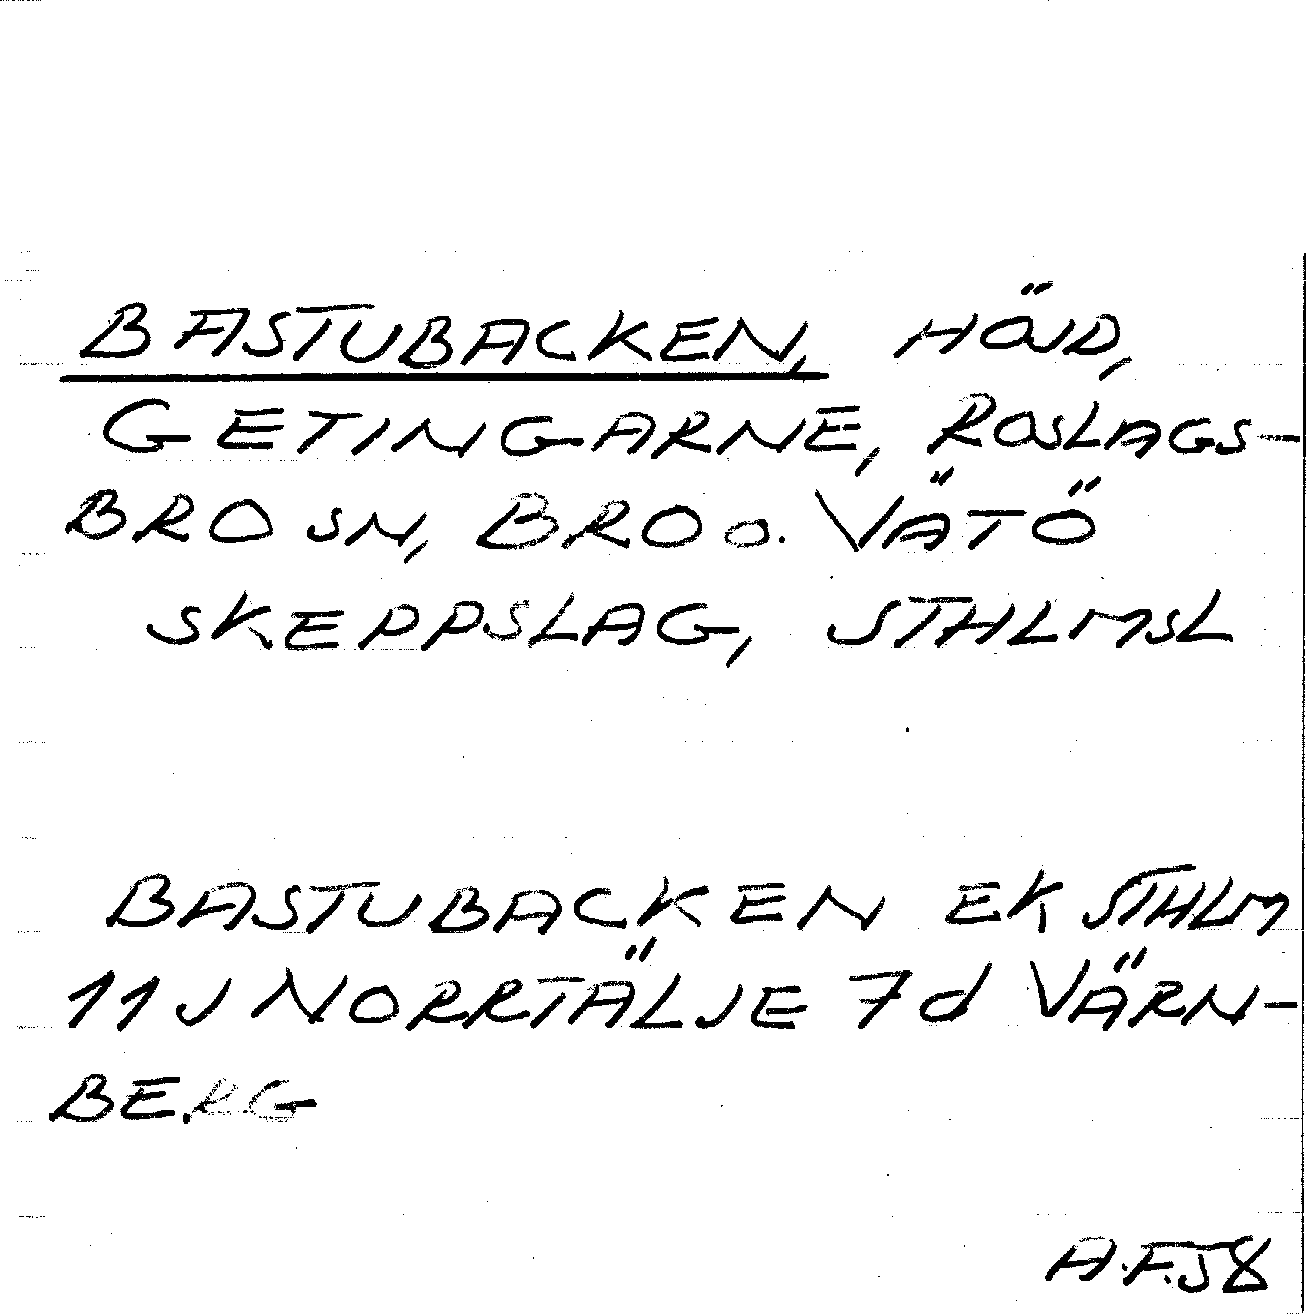 BASTUBACKEN, HÖJD,
GETINGARNE, ROSLAGS-
BRO SN, BRO O. VÄTÖ
SKEPPSLAG, STHLMSL
BASTUBACKEN EK STHLM
11 J NORRTÄLJE 7d VÄRN-
BERG
A.F.58